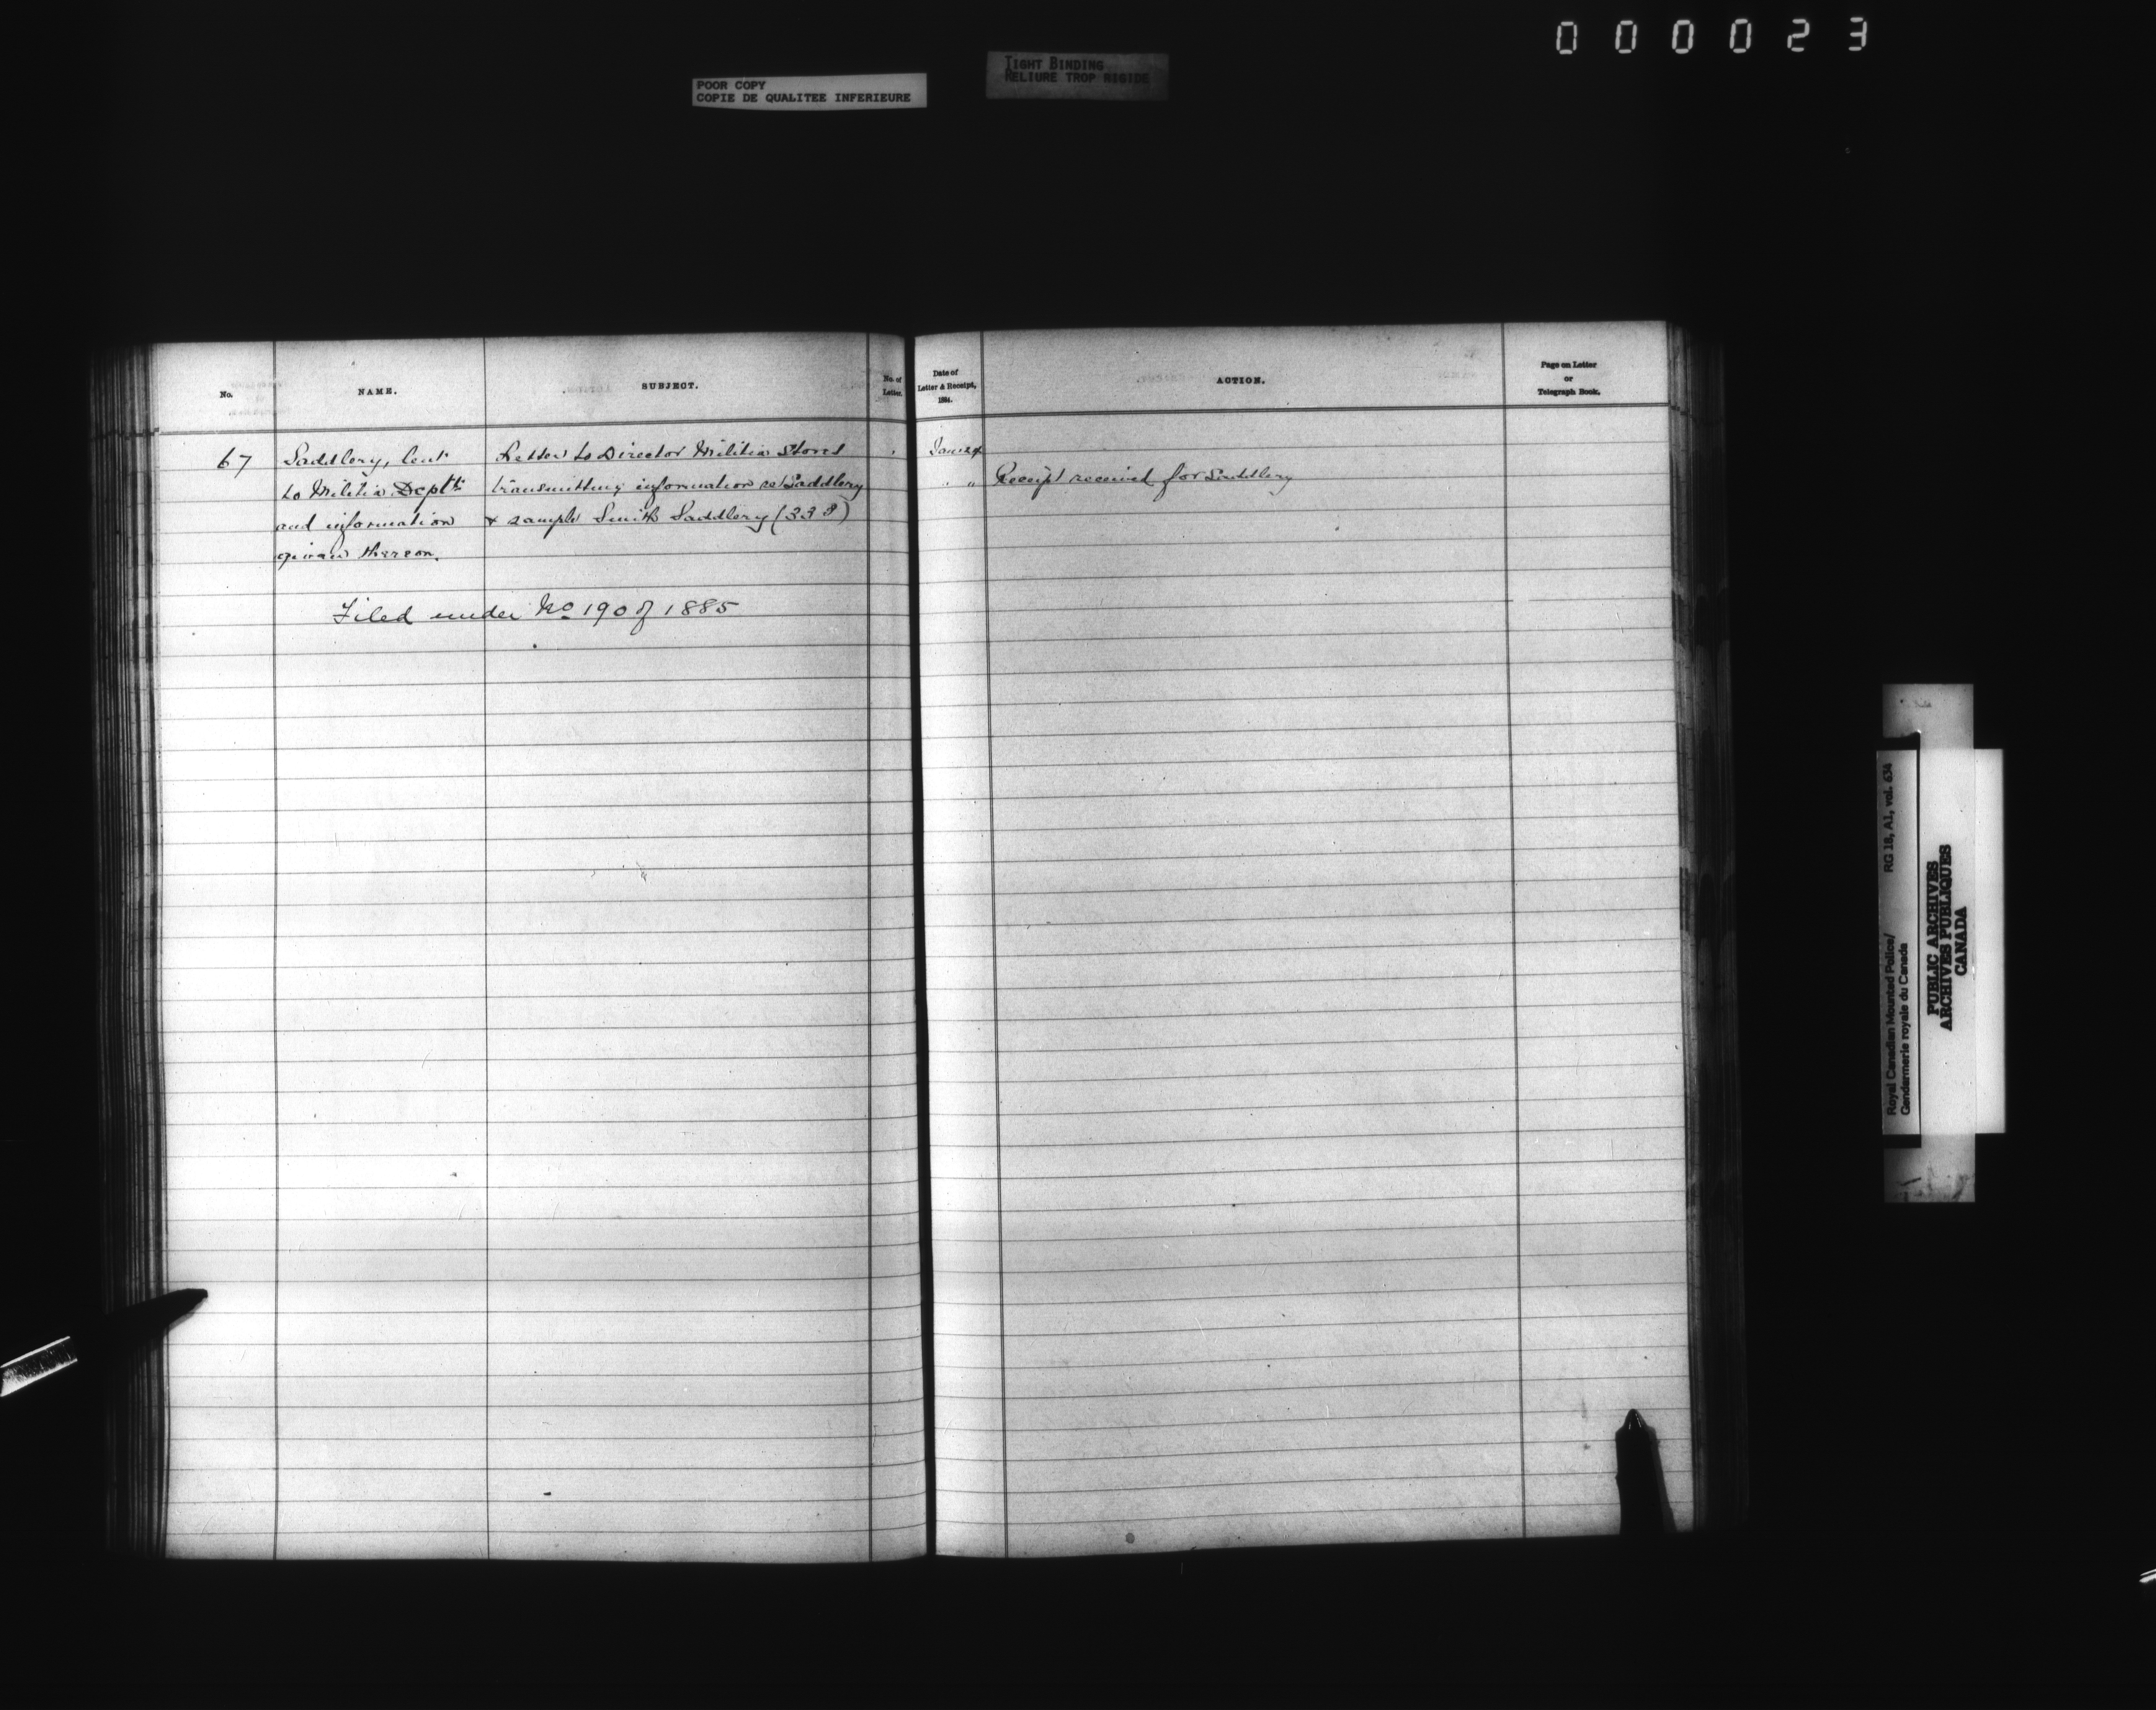 000023
TIGHT BINDING
RELIURE TROP RIGIDE
POOR COPY
COPIE DE QUALITEE INFERIEURE
No.
NAME.
SUBJECT.
No. of
Letter.
Date of
Letter & Receipt,
1884.
ACTION.
Page on Letter
or
Telegraph Book.
67
Saddlery, lent
to Militia Deptt
and information
given thereon.
Letter to Director Militia Stores
transmitting information re Saddlery
& sample Smith Saddlery (333)
Jan 24
" "
Receipt received for Saddlery
Filed under No 190 of 1885
Royal Canadian Mounted Police/
Gendarmerie royale du Canada
RG 18, A1, vol. 634
PUBLIC ARCHIVES
ARCHIVES PUBLIQUES
CANADA